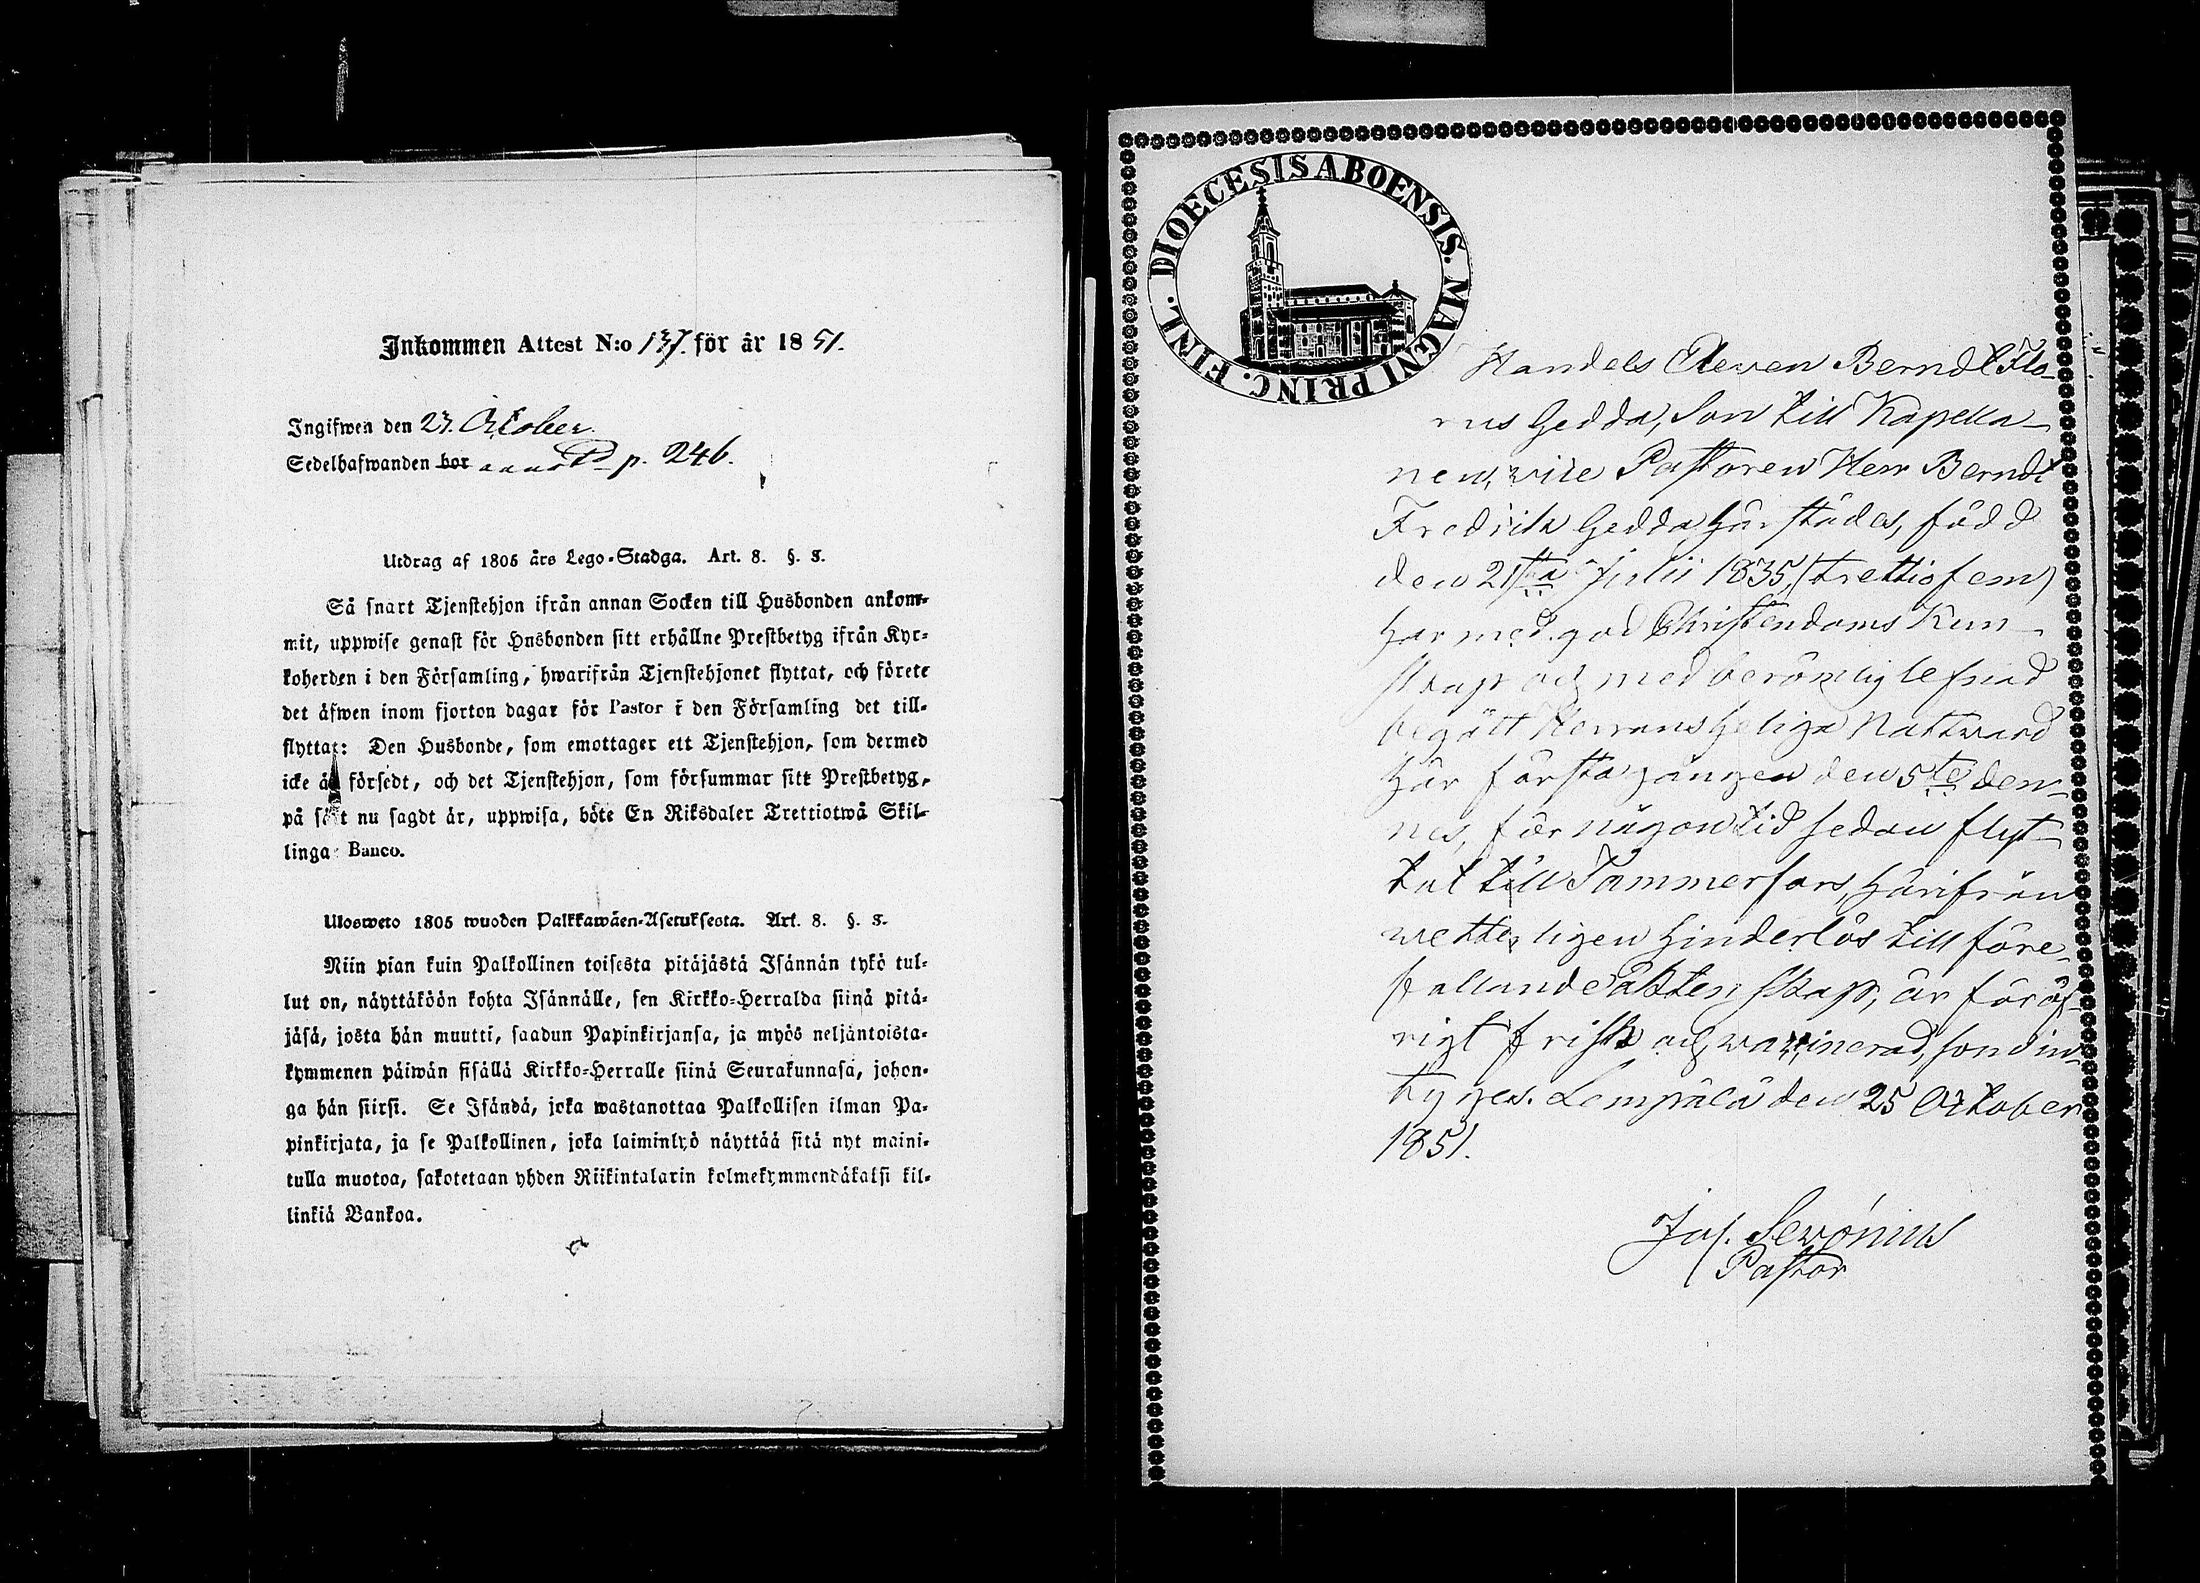 Inkommen Attest N:o 137. för år 1851.
Ingifwen den 27. October.
Sedelhafwanden bor p. 246.
Utdrag af 1805 års Lego-Stadga. Art. 8. §. 3.
Så snart Tjenstehjon ifrån annan Socken till Husbonden ankom-
mit, uppwise genast för Husbonden sitt erhållne Prestbetyg ifrån Kyr-
koherden i den Församling, hwarifrån Tjenstehjonet flyttat, och förete
det äfwen inom fjorton dagar för Pastor i den Församling det till-
flyttat: Den Husbonde, som emottager ett Tjenstehjon, som dermed
icke är försedt, och det Tjenstehjon, som försummar sitt Prestbetyg,
på sätt nu sagdt är, uppwisa, böte En Riksdaler Trettiotwå Skil-
linga Banco.
Ulosweto 1805 wuoden Palkkawäen-Asetuksesta. Art. 8. §. 3.
Niin pian kuin Palkollinen toisesta pitäjästä Isännän tykö tul-
lut on, näyttäköön kohta Isännälle, sen Kirkko-Herralda siinä pitä-
jäsä, josta hän muutti, saadun Papinkirjansa, ja myös neljäntoista-
kymmenen päiwän sisällä Kirkko-Herralle siinä Seurakunnasa, johon-
ga hän siirsi. Se Isändä, joka wastanottaa Palkollisen ilman Pa-
pinkirjata, ja se Palkollinen, joka laiminlyö näyttää sitä nyt maini-
tulla muotoa, sakotetaan yhden Riikintalarin kolmekymmendäkaksi kil-
linkiä Bankoa.
DIOECESIS ABOENSIS. MAGNI PRINC. FINL.
Handels Eleven Berndt Flo-
rus Gedda, Son till Kapella-
nen, vice Pastoren Herr Berndt
Fredrik Gedda härstädes, född
den 21sta Julii 1835, (trettiofem)
har med god Christendoms Kun-
skap och med berömlig lefnad
begått Herrans heliga Nattward
här första gången den 5te den-
nes, för någon tid sedan flyt-
tat till Tammerfors, härifrån
wetterligen hinderlös till före-
fallande äktenskap, är föröf-
rigt frisk och vaccinerad, som in-
tygas. Lempälä den 25 October
1851.
Jos. Sevonius
Pastor